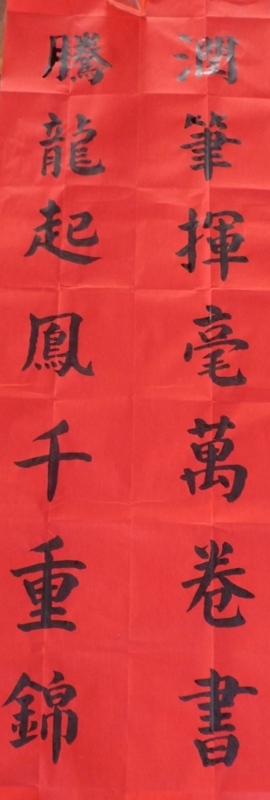 潤筆揮毫萬卷書
騰龍起鳳千重錦